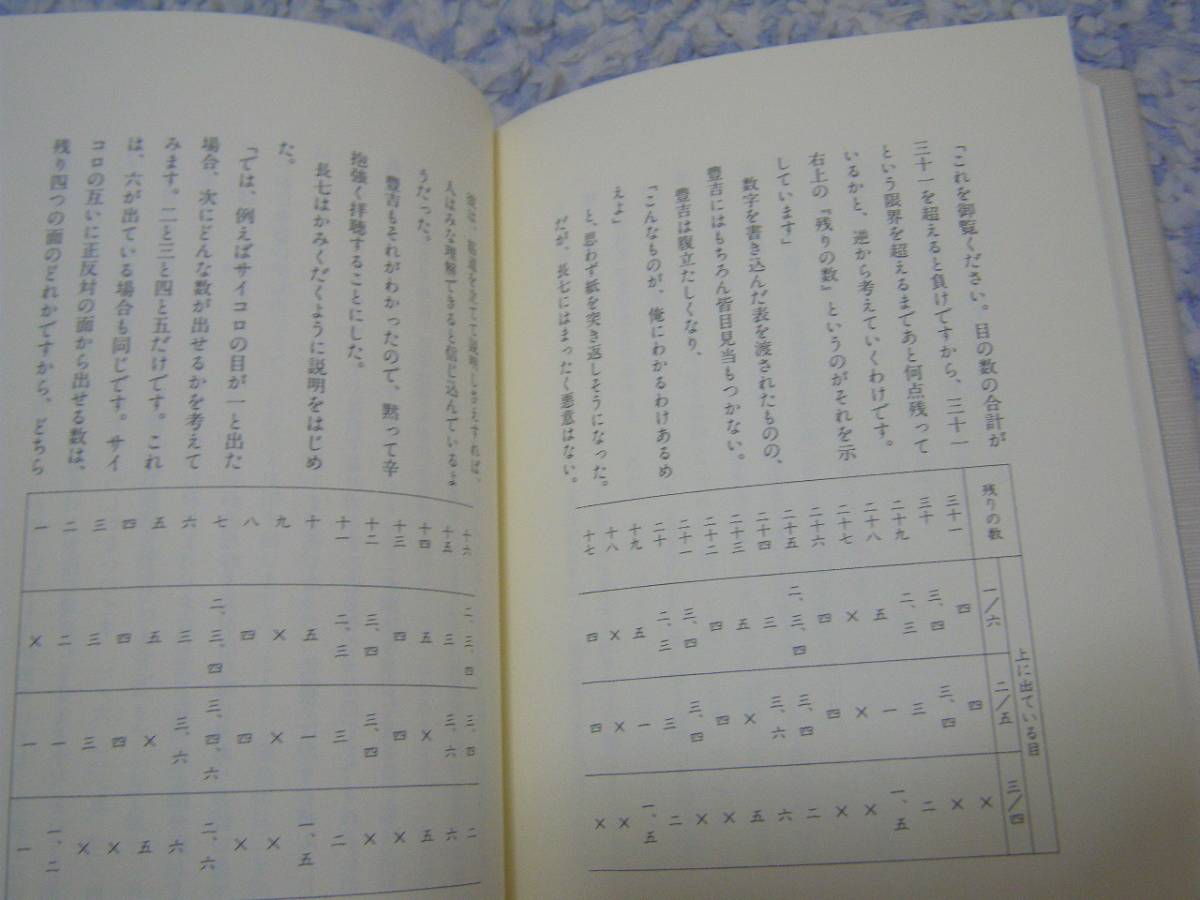 「これを御覧ください。目の数の合計が
三十一を超えると負けですから、三十一
という限界を超えるまであと何点残って
いるかと、逆から考えていくわけです。
右上の『残りの数』というのがそれを示
しています」
数字を書き込んだ表を渡されたものの、
豊吉にはもちろん皆目見当もつかない。
豊吉は腹立たしくなり、
「こんなものが、俺にわかるわけあるめ
えよ」
と、思わず紙を突き返しそうになった。
だが、長七にはまったく悪意はない。
上に出ている目
残りの数 一/六 二/五 三/四
三十一 四 四 ×
三十 三、四 三、四 ×
二十九 二、三 三 二
二十八 五 一 一、五
二十七 × × ×
二十六 四 四 ×
二十五 二、三、四 三、四 二
二十四 三 三、六 六
二十三 五 × 五
二十二 四 四 ×
二十一 三、四 三、四 ×
二十 二、三 三 二
十九 五 一 一、五
十八 × × ×
十七 四 四 ×
彼は、筋道を立てて説明しさえすれば、
人はみな理解できると信じ込んでいるよ
うだった。
豊吉もそれがわかったので、黙って辛
抱強く拝聴することにした。
長七はかみくだくように説明をはじめ
た。
「では、例えばサイコロの目が一と出た
場合、次にどんな数が出せるかを考えて
みます。二と三と四と五だけです。これ
は、六が出ている場合も同じです。サイ
コロの互いに正反対の面から出せる数は、
残り四つの面のどれかですから、どちら
十六 二、三、四 三、四 二
十五 三 三、六 六
十四 五 × 五
十三 四 四 ×
十二 三、四 三、四 ×
十一 二、三 三 二
十 五 一 一、五
九 × × ×
八 四 四 ×
七 二、三、四 三、四、六 二、六
六 三 三、六 六
五 五 × 五
四 四 四 ×
三 三 三 ×
二 二 一 一、二
一 × 一 一